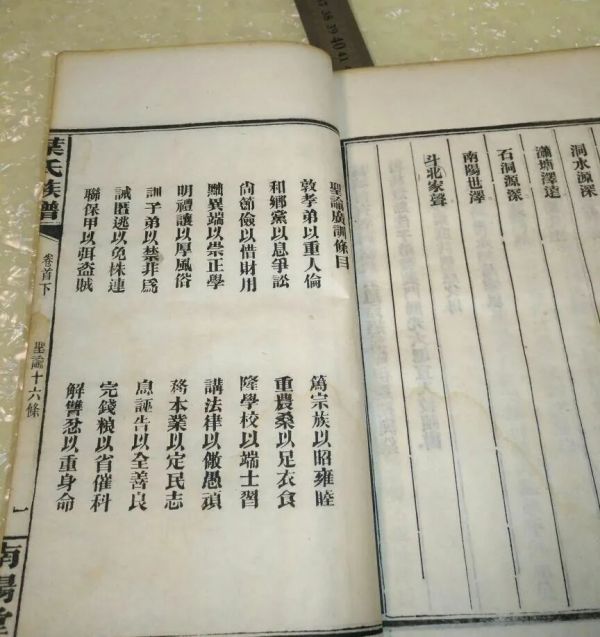 洞水源深
瀟塘澤遠
石洞源深
南陽世澤
斗北家聲
聖諭廣訓條目
敦孝弟以重人倫　篤宗族以昭雍睦
和鄉黨以息爭訟　重農桑以足衣食
尚節儉以惜財用　隆學校以端士習
黜異端以崇正學　講法律以儆愚頑
明禮讓以厚風俗　務本業以定民志
訓子弟以禁非爲　息誣告以全善良
誡匿逃以免株連　完錢粮以省催科
聯保甲以弭盜賊　解讐忿以重身命
葉氏族譜　卷首下　聖諭十六條　一　南陽堂
38 39 40 41